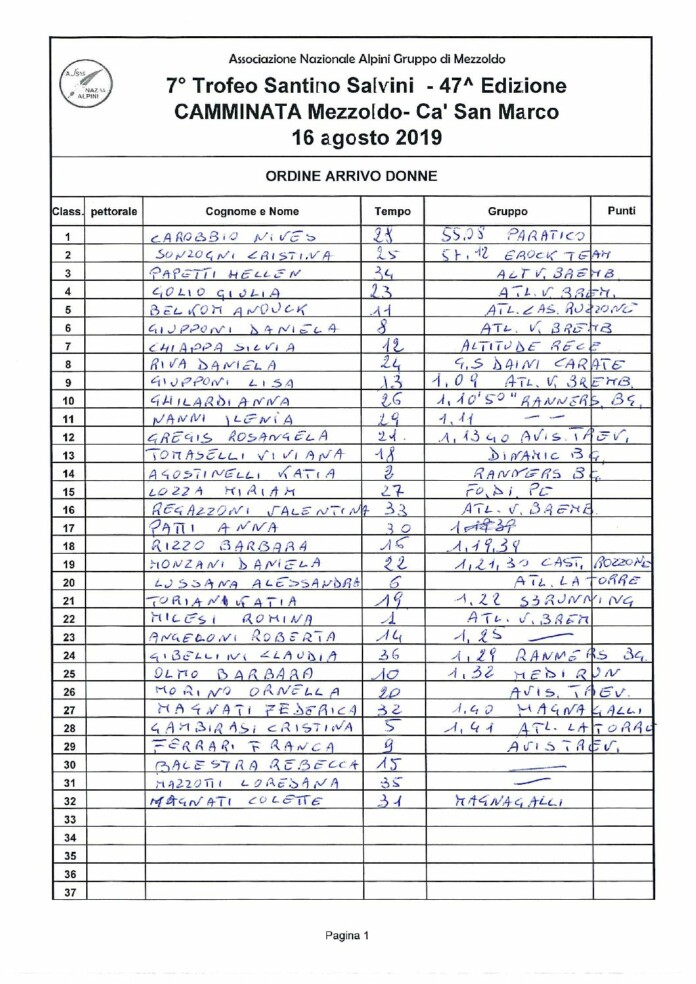 Associazione Nazionale Alpini Gruppo di Mezzoldo
7° Trofeo Santino Salvini - 47^ Edizione
CAMMINATA Mezzoldo- Ca' San Marco
16 agosto 2019
ORDINE ARRIVO DONNE
Class. pettorale Cognome e Nome Tempo Gruppo Punti
1 CAROBBIO NIVES 28 55.08 PARATICO
2 SONZOGNI CRISTINA 25 57.12 EROCK TEAM
3 PAPETTI HELLEN 34 ALT V. BREMB
4 GOLIO GIULIA 23 ATL. V. BREM.
5 BELKOM ANOUCK 11 ATL. CAS. ROZZONE
6 GIUPPONI DANIELA 8 ATL. V. BREMB
7 CHIAPPA SILVIA 12 ALTITUDE RECE
8 RIVA DANIELA 24 G,S DAINI CARATE
9 GIUPPONI LISA 13 1,09 ATL. V. BREMB.
10 GHILARDI ANNA 26 1,10'50" RANNERS, BG.
11 NANNI ILENIA 29 1.11 — —
12 GREGIS ROSANGELA 21. 1,1340 AVIS. TREV,
13 TOMASELLI VIVIANA 18 DINAMIC BG,
14 AGOSTINELLI KATIA 2 RANNERS BG,
15 LOZZA MIRIAM 27 FO. DI, PE
16 REGAZZONI VALENTINA 33 ATL. V. BREMB.
17 PATTI ANNA 30
18 RIZZO BARBARA 16 1,19,39
19 MONZANI DANIELA 22 1,21,30 CAST, ROZZONE
20 LUSSANA ALESSANDRA 6 ATL. LA TORRE
21 TORIANI KATIA 19 1,22 S3RUNNING
22 MILESI ROMINA 1 ATL. V. BREM
23 ANGELONI ROBERTA 14 1,25 —
24 GIBELLINI CLAUDIA 36 1,29 RANNERS BG.
25 OLMO BARBARA 10 1,32 MEDIRUN
26 MORINO ORNELLA 20 AVIS. TREV.
27 MAGNATI FEDERICA 32 1,40 MAGNAGALLI
28 GAMBIRASI CRISTINA 5 1,41 ATL. LA TORRE
29 FERRARI FRANCA 9 AVIS TREV,
30 BALESTRA REBECCA 15 —
31 MAZZOTTI LOREDANA 35 —
32 MAGNATI COLETTE 31 MAGNAGALLI
33
34
35
36
37
Pagina 1